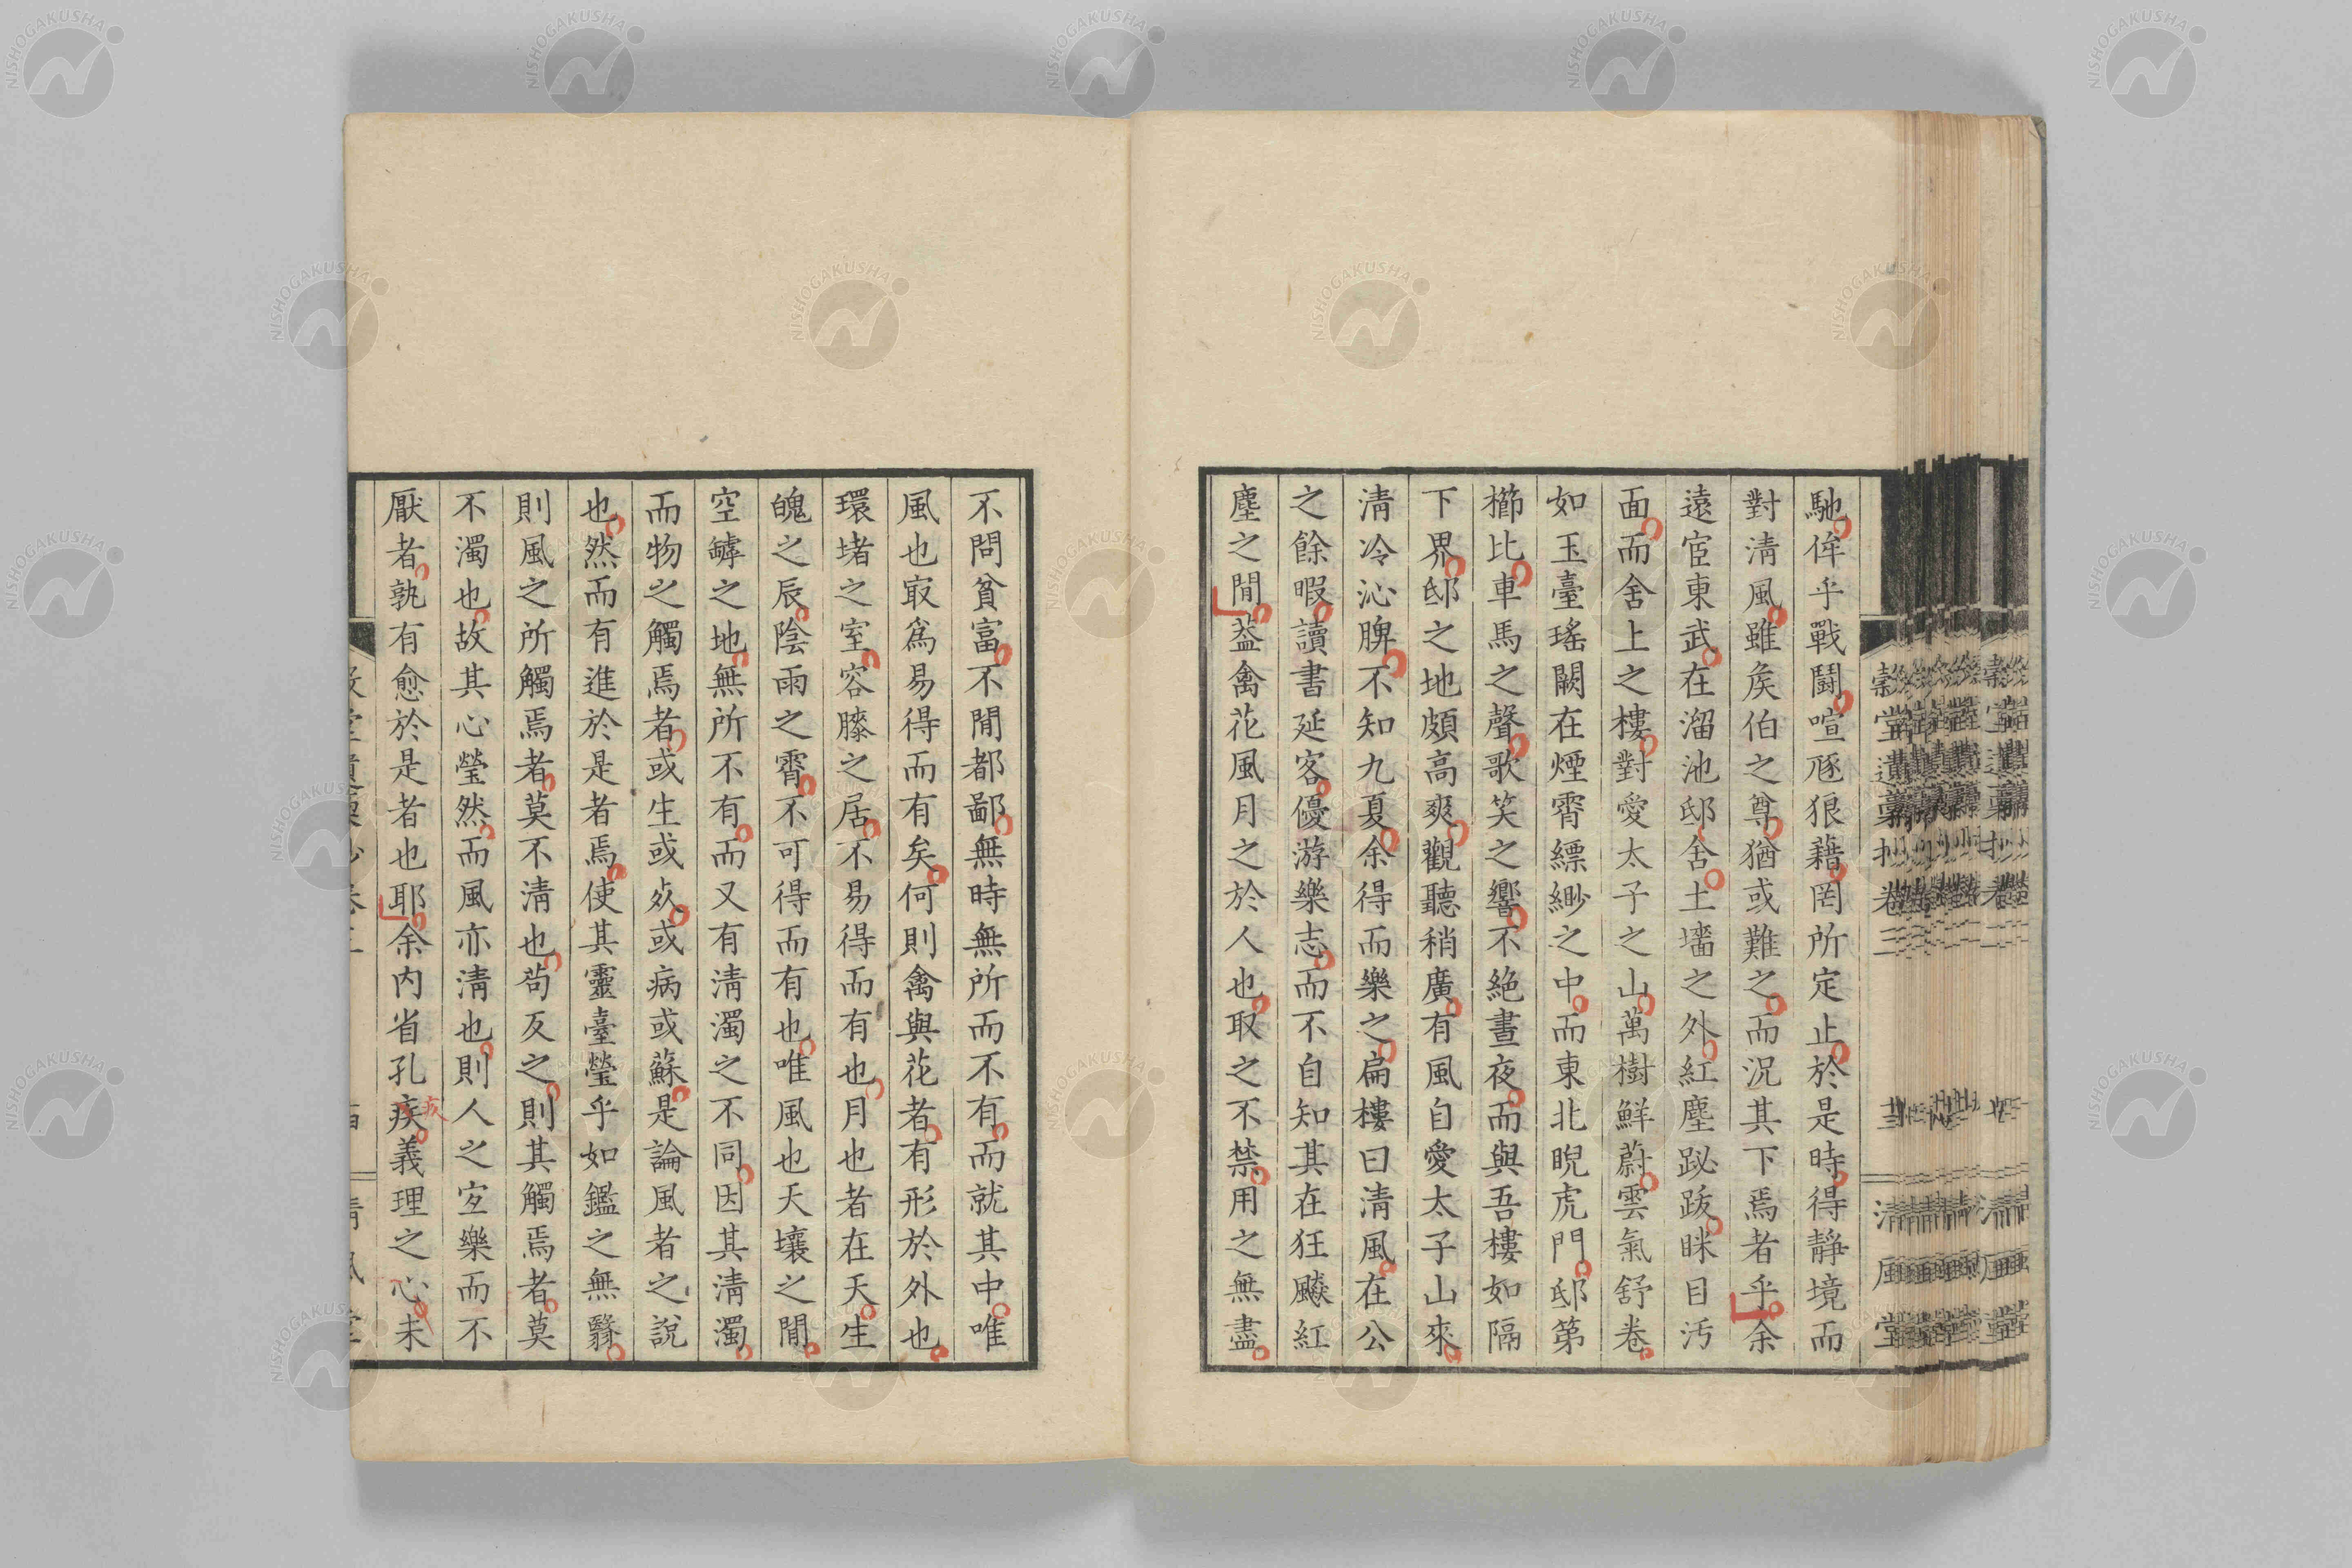 馳侔乎戰鬪喧豗狼藉罔所定止於是時得靜境而
對淸風雖矦伯之尊猶或難之而況其下焉者乎余
遠宦東武在溜池邸舍土墻之外紅塵跋眯目汚
面而舍上之樓對愛太子之山萬樹鮮蔚雲氣舒卷
如玉臺瑤闕在煙霄縹緲之中而東北睨虎門邸第
櫛比車馬之聲歌笑之響不絶晝夜而與吾樓如隔
下界邸之地頗高爽觀聽稍廣有風自愛太子山來
淸冷沁脾不知九夏余得而樂之扁樓曰淸風在公
之餘暇讀書延客優游樂志而不自知其在狂飈紅
塵之閒葢禽花風月之於人也取之不禁用之無盡
不問貧富不閒都鄙無時無所而不有而就其中唯
風也㝡爲易得而有矣何則禽與花者有形於外也
環堵之室容膝之居不易得而有也月也者在天生
魄之辰陰雨之霄不可得而有也唯風也天壤之閒
空罅之地無所不有而又有淸濁之不同因其淸濁
而物之觸焉者或生或死或病或蘇是論風者之說
也然而有進於是者焉使其靈臺瑩乎如鑑之無翳
則風之所觸焉者莫不淸也苟反之則其觸焉者莫
不濁也故其心瑩然而風亦淸也則人之宜樂而不
厭者孰有愈於是者也耶余内省孔疾義理之心未
疚
卷三
淸風堂
NISHOGAKUSHA